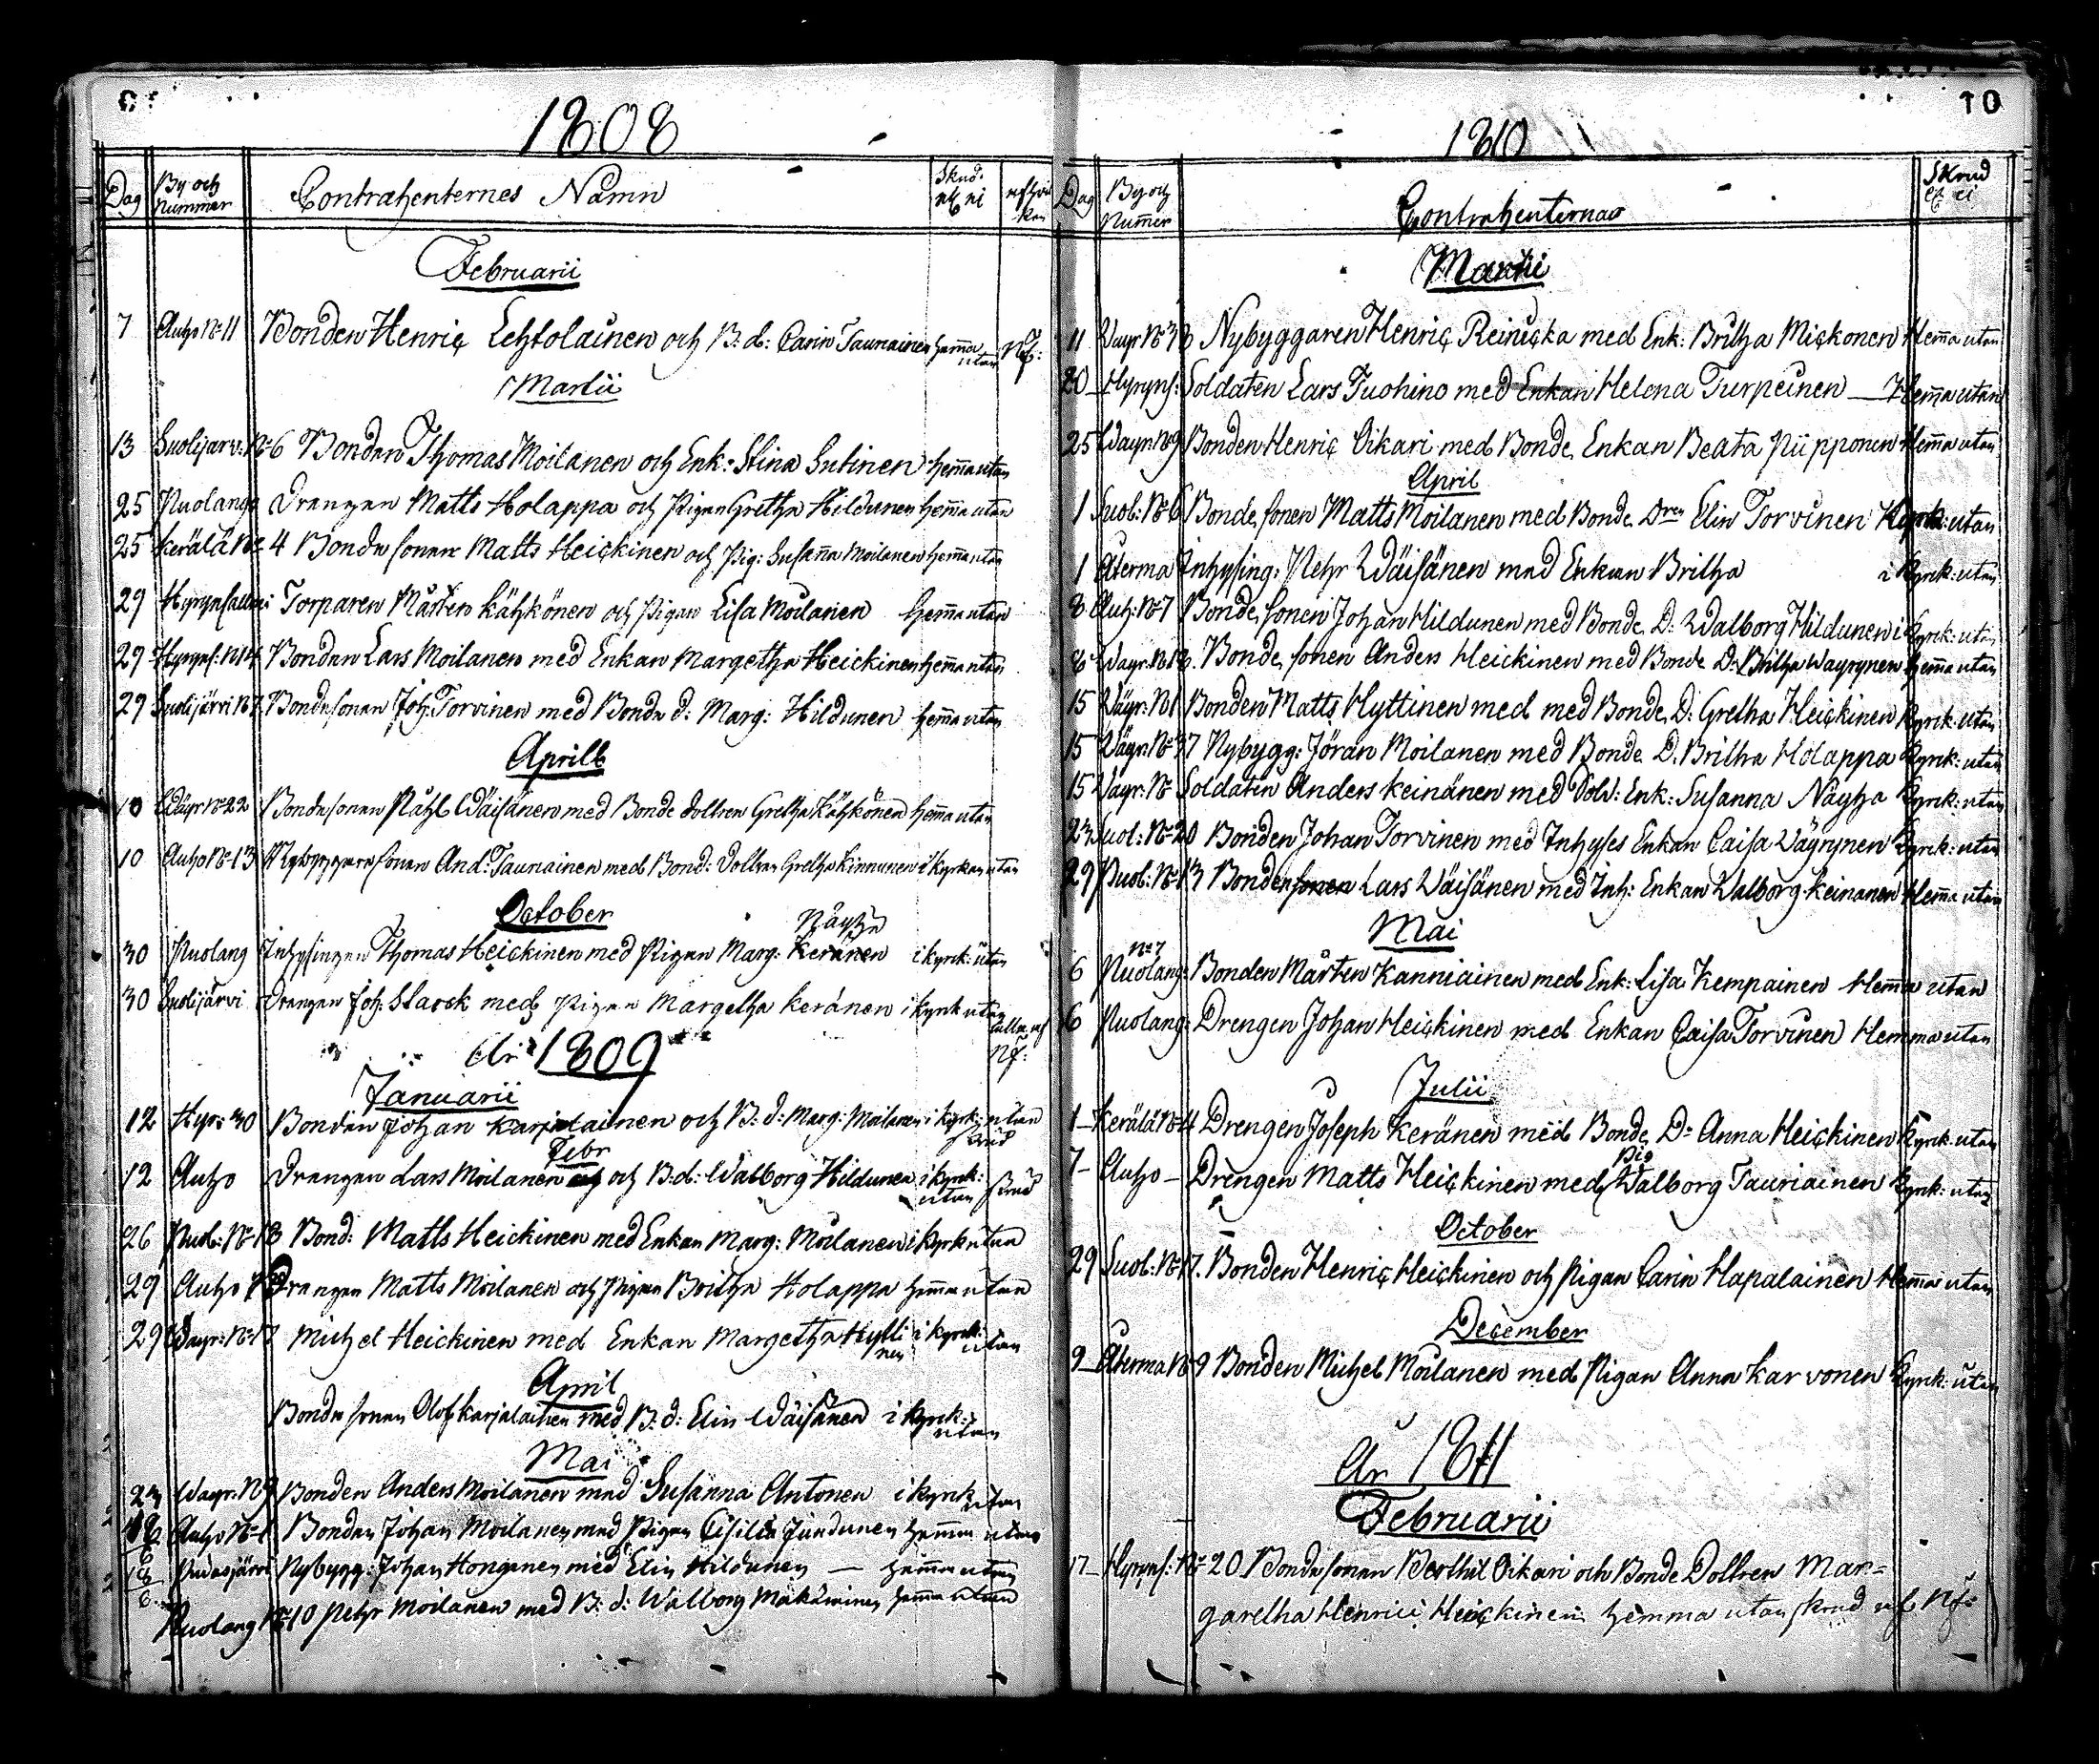 1808
Dag By och nummer Contrahenternes Namn Skrud
Februarii
7 Auho No 11 Bonden Henric Lehtolainen och B: d: Carin Tauriainen hemma utan
Martii
13 Suolijarv: No 6 Bonden Thomas Moilanen och Enk: Stina Sutinen hemma utan
25 Puolango Drengen Matts Holappa och Pigan Gretha Hildunen hemma utan
25 Kerälä No 4 Bonde sonen Matts Heickinen och Pig: Susanna Moilanen hemma utan
29 Hyrynsalmi Torparen Mårten Kähkönen och Pigan Lisa Moilanen hemma utan
29 Hyryns: N 14 Bonden Lars Moilanen med Enkan Margetha Heickinen hemma utan
29 Suolijärvi N 7 Bondesonen Joh: Torvinen med Bonde d: Marg: Hildunen hemma utan
Aprill
10 Wäyr No 22 Bondesonen Påhl Wäisänen med Bonde dottren Gretha Kähkönen hemma utan
10 Auho No 13 Nybyggare sonen And: Tauriainen med Bond: Dottren Gretha Kinnunen i kyrkan utan
October
Näyhä
30 Puolang Inhysingen Thomas Heickinen med Pigan Marg: Keränen i kyrk: utan
30 Suolijärvi Drengen Joh: Starck med Pigan Margetha Keränen i kyrk utan
År 1809
Januarii
12 Hyr: 30 Bonden Johan Karjalainen och B: d: Marg: Moilanen i kyrk: utan skrud
Febr
12 Auho Drengen Lars Moilanen och B: d: Walborg Hildunen i kyrk: utan skrud
26 Puol: No 13 Bond: Matts Heickinen med Enkan Marg: Moilanen i kyrk utan
29 Auho Drengen Matts Moilanen och Pigan Britha Holappa hemma utan
29 Wäyr: No 17 Michel Heickinen med Enkan Margetha Hyttinen i kyrk: utan
April
Bonde sonen Olof Karjalainen med B: d: Elin Wäisänen i kyrk: utan
Mai
23 Wäyr: N 9 Bonden Anders Moilanen med Susanna Antonen i kyrk utan
Auho No 1 Bonden Johan Moilanen med Pigan Cisilia Jundunen hemma utan
18/6 Pudasjärvi Nybygg: Johan Honganen med Elin Hildunen — hemma utan
Puolang No 10 Petr Moilanen med B: d: Walborg Makäräinen hemma utan
10
1810
Dag By och Nummer Contrahenternas Skrud el ei
Martii
11 Wäyr No 33 Nybyggaren Henric Reinicka med Enk: Britha Mickonen Hemma utan
20 Hyryns: Soldaten Lars Tuohino med Enkan Helena Turpeinen — Hemma utan
25 Wäyr: No 9 Bonden Henric Oikari med Bonde Enkan Beata Piipponen Hemma utan
April
1 Suol: No 6 Bonde sonen Matts Moilanen med Bonde Dren Elin Torvinen Kyrk: utan
1 Aterma Inhysing: Pehr Wäisänen med Enkan Britha i Kyrk: utan
8 Auh: No 7 Bonde sonen Johan Hildunen med Bonde D: Walborg Hildunen i Kyrk: utan
8 Wäyr: N 13. Bonde sonen Anders Heickinen med Bonde D: Britha Wäyrynen Hemma utan
15 Wäyr: N 1 Bonden Matts Hyttinen med med Bonde D: Gretha Heickinen Kyrk: utan
15 Wäyr: No 37 Nybygg: Jöran Moilanen med Bonde D. Britha Holappa Kyrk: utan
15 Wäyr: No Soldaten Anders Keinänen med Sold: Enk: Susanna Näyhä Kyrk: utan
23 Suol: No 20 Bonden Johan Torvinen med Inhyses Enkan Caisa Wäyrynen Kyrk: utan
29 Puol: No 13 Bondensonen Lars Wäisänen med Inh: Enkan Walborg Keinänen Hemma utan
Mai
No 7
6 Puolang: Bonden Mårten Kanniainen med Enk: Lisa Kempainen Hemma utan
6 Puolang: Drengen Johan Heickinen med Enkan Caisa Torvinen Hemma utan
Julii
1 Kerälä No 4 Drengen Joseph Keränen med Bonde D: Anna Heickinen Kyrk: utan
Pig
7 Auho Drengen Matts Heickinen med Walborg Tauriainen Kyrk: utan
October
29 Suol: No 17. Bonden Henric Heickinen och Pigan Carin Hapalainen Hemma utan
December
9 Aterma No 9 Bonden Michel Moilanen med Pigan Anna Karvonen Kyrk: utan
År 1811
Februarii
17 Hyryns: No 20 Bonde sonen Berthil Oikari och Bonde Dottren Mar=
garetha Henrici Heickinen hemma utan skrud